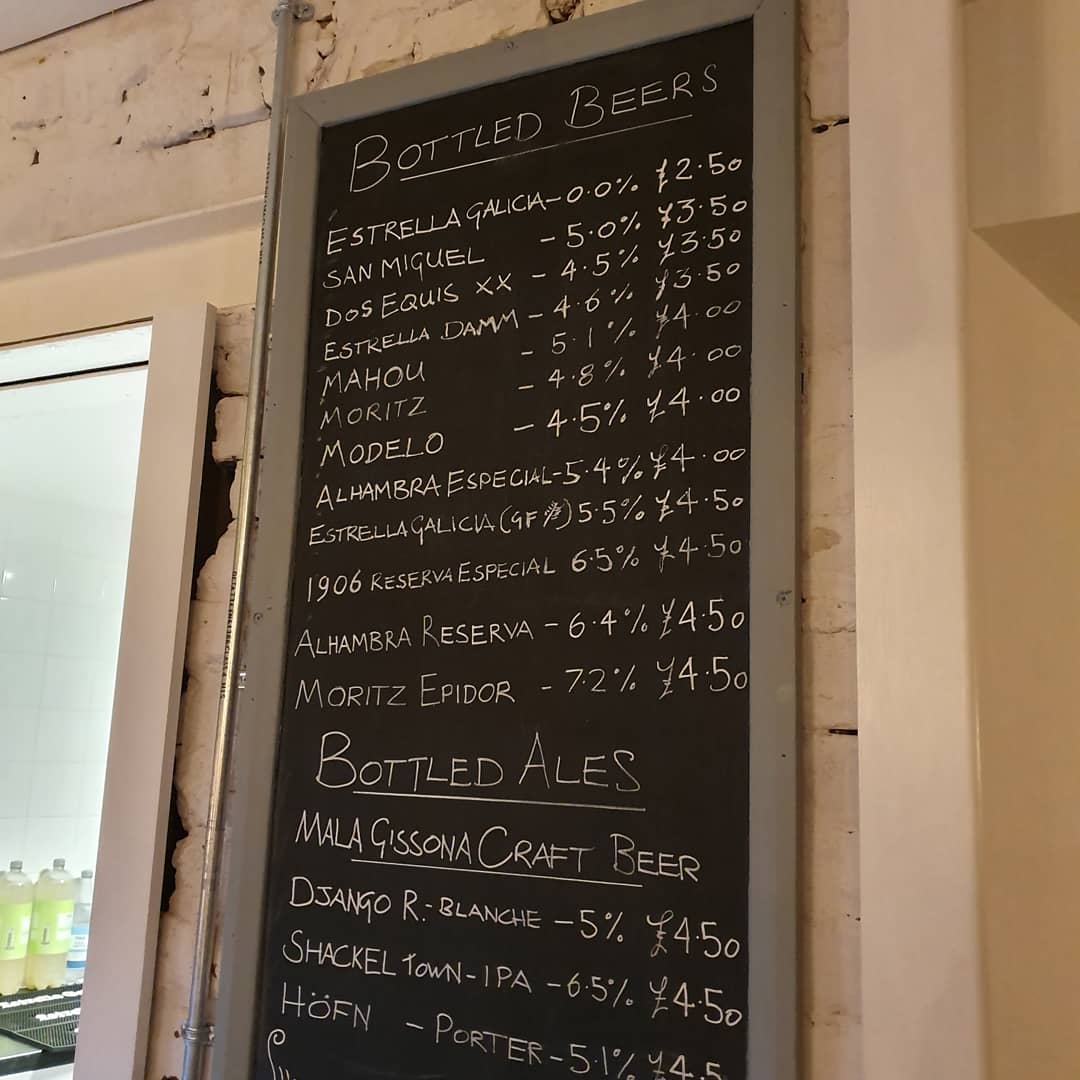 BOTTLED BEERS
ESTRELLA GALICIA - 0.0% £2.50
SAN MIGUEL - 5.0% £3.50
DOS EQUIS XX - 4.5% £3.50
ESTRELLA DAMM - 4.6% £3.50
MAHOU - 5.1% £4.00
MORITZ - 4.8% £4.00
MODELO - 4.5% £4.00
ALHAMBRA ESPECIAL - 5.4% £4.00
ESTRELLA GALICIA (GF) 5.5% £4.50
1906 RESERVA ESPECIAL 6.5% £4.50
ALHAMBRA RESERVA - 6.4% £4.50
MORITZ EPIDOR - 7.2% £4.50
BOTTLED ALES
MALA GISSONA CRAFT BEER
DJANGO R.- BLANCHE - 5% £4.50
SHACKEL TOWN - IPA - 6.5% £4.50
HÖFN - PORTER - 5.1% £4.5